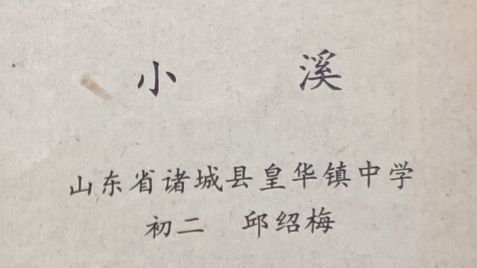 小 溪
山东省诸城县皇华镇中学
初二 邱绍梅